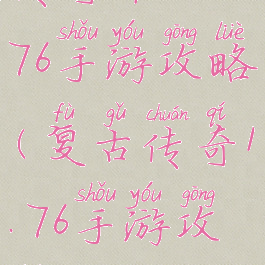 shǒu yóu gōng lüè
76手游攻略
fù gǔ chuán qí
(复古传奇1
shǒu yóu gōng
.76手游攻